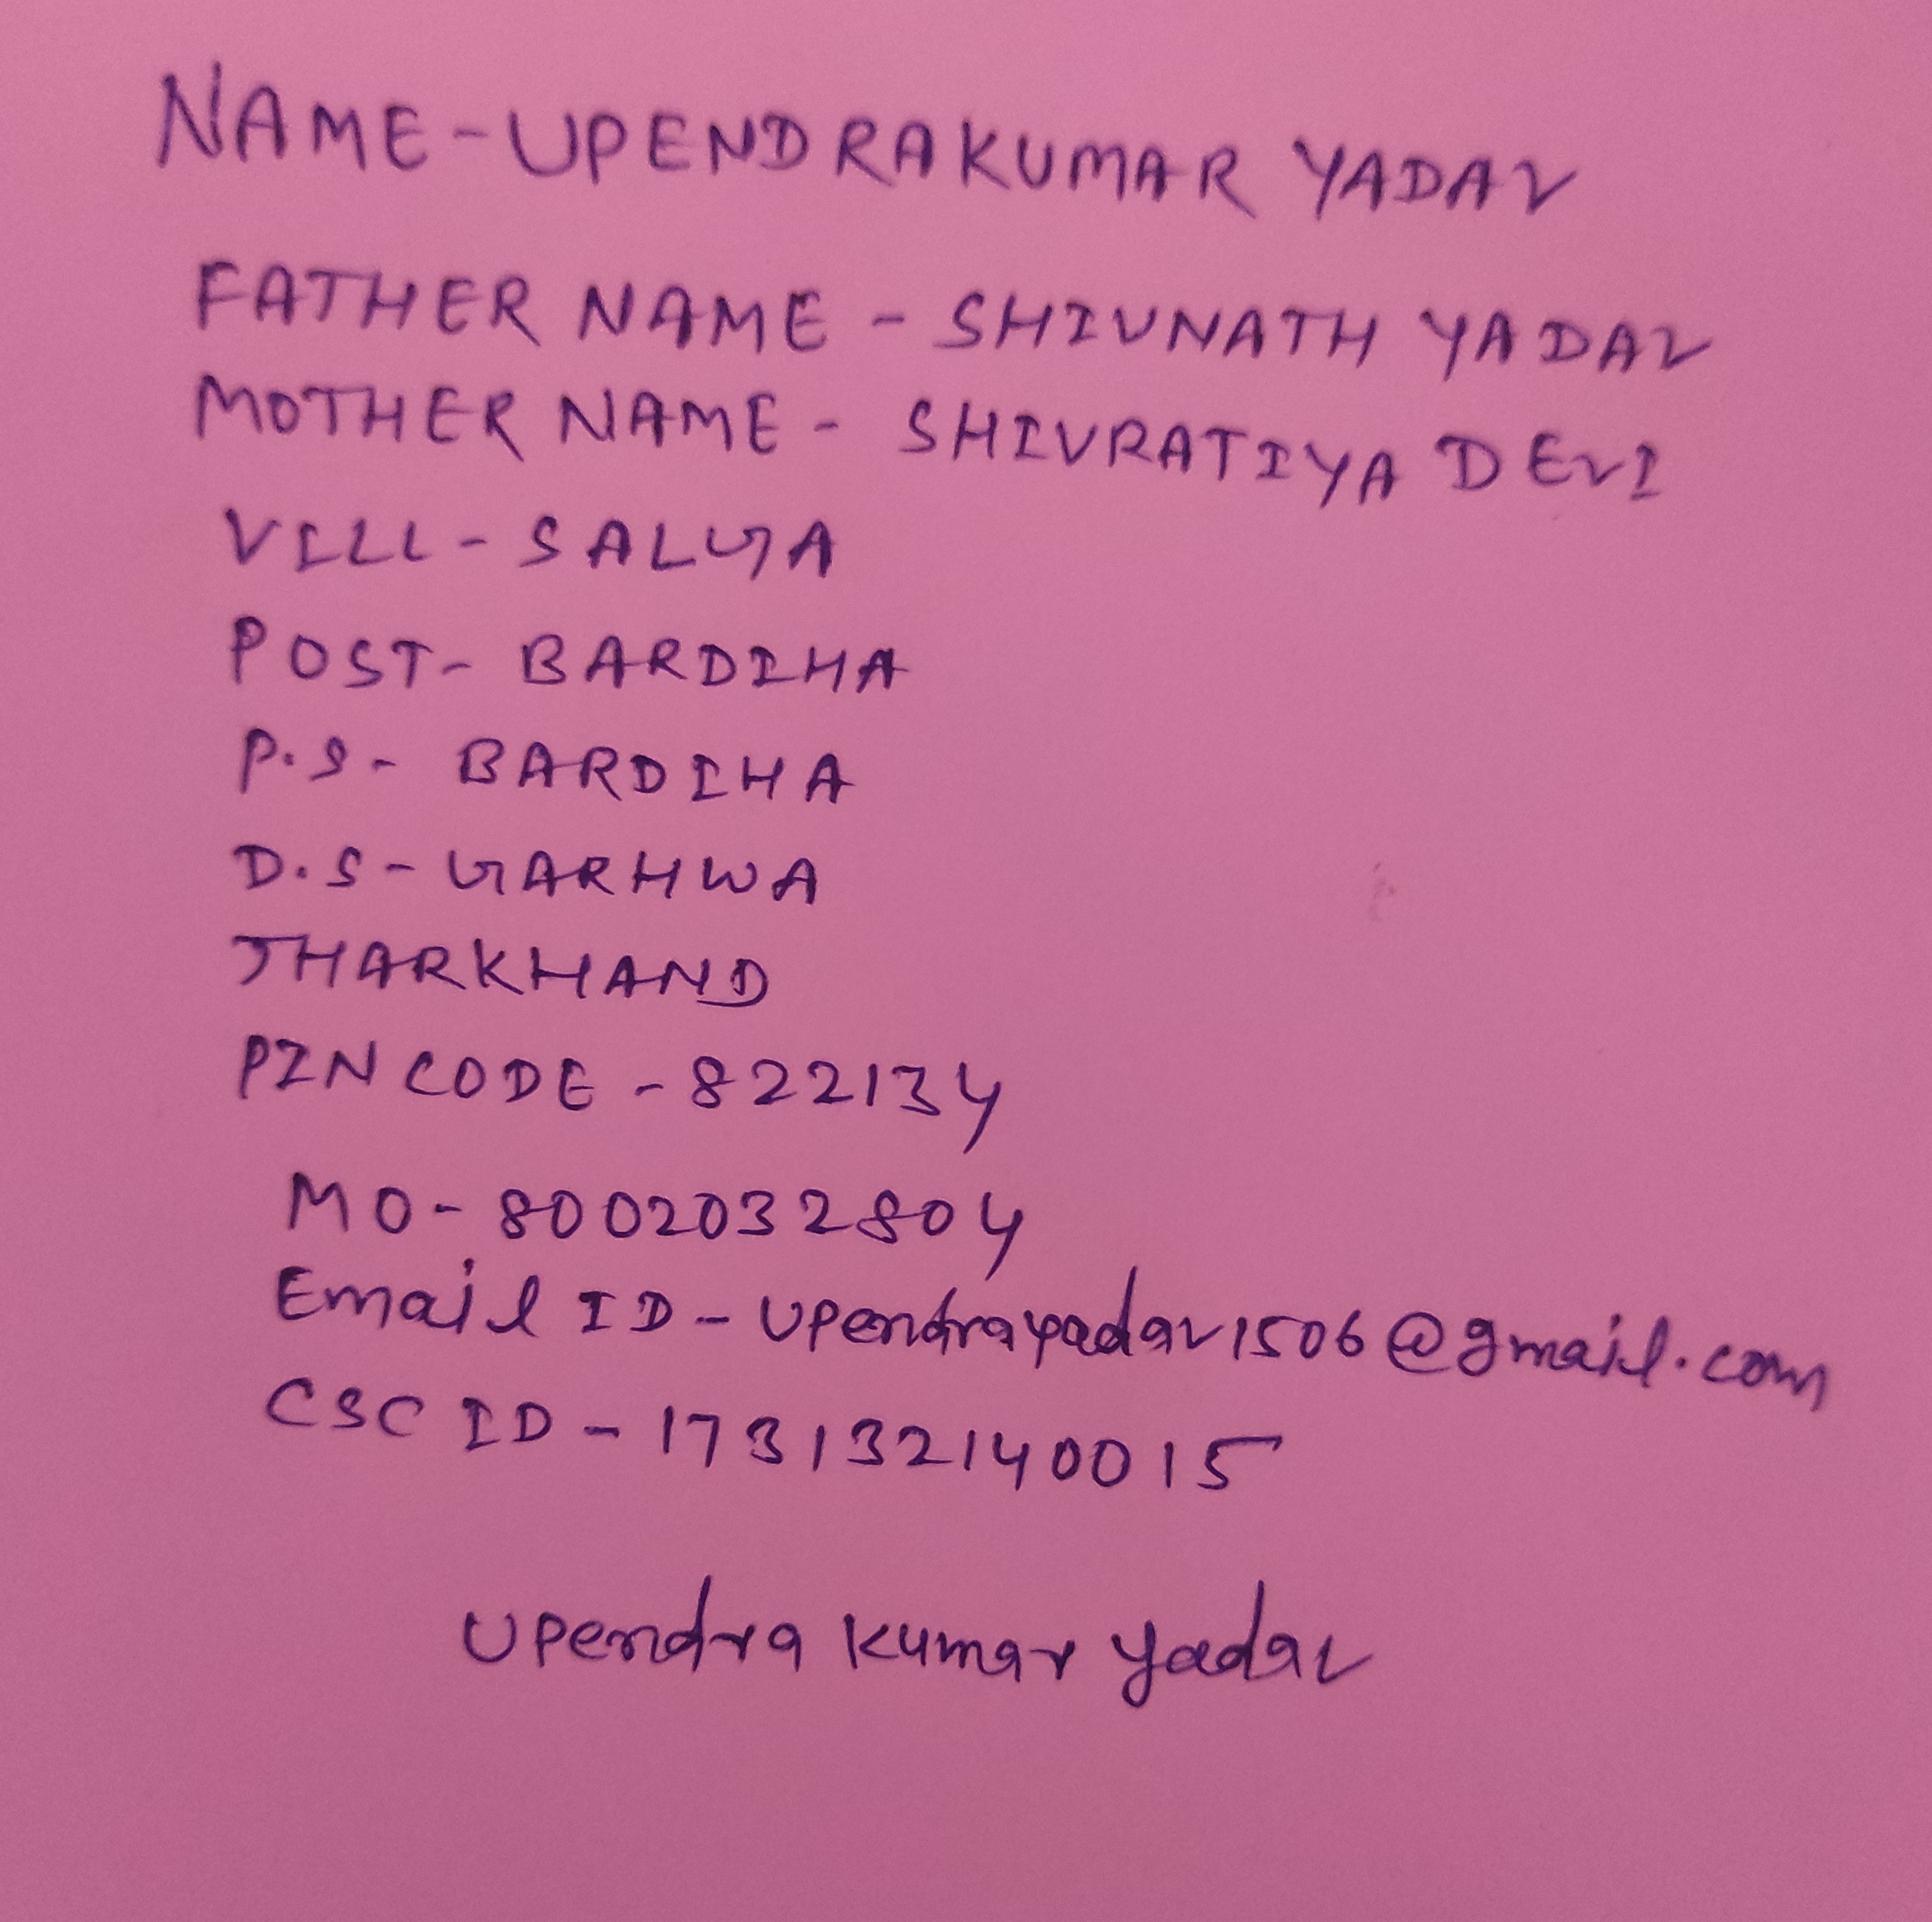 NAME-UPENDRA KUMAR YADAV
FATHER NAME - SHIVNATH YADAV
MOTHER NAME - SHIVRATIYA DEVI
VILL - SALGA
POST- BARDIHA
P.S- BARDIHA
D.S- GARHWA
JHARKHAND
PIN CODE - 822134
MO- 8002032804
Email ID - upendrayadav1506@gmail.com
CSC ID - 173132140015
Upendra Kumar Yadav